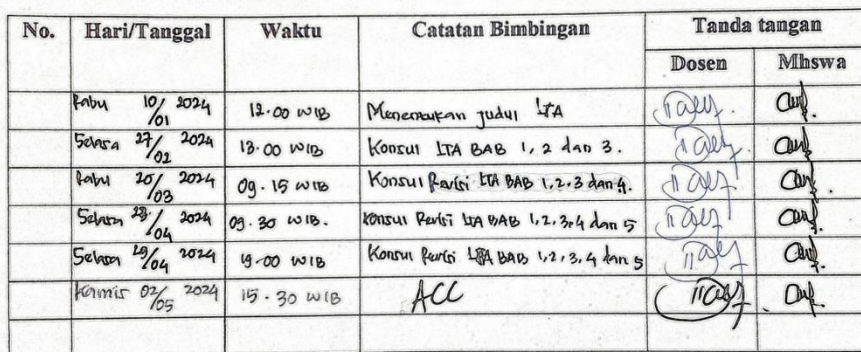 No. Hari/Tanggal Waktu Catatan Bimbingan Tanda tangan
Dosen Mhswa
Rabu 10/01 2024 12.00 WIB Menentukan judul LTA
Selasa 27/02 2024 13.00 WIB Konsul LTA BAB 1, 2 dan 3.
Rabu 20/03 2024 09.15 WIB Konsul Revisi LTA BAB 1, 2, 3 dan 4.
Selasa /04 2024 09.30 WIB. Konsul Revisi LTA BAB 1, 2, 3, 4 dan 5
Selasa /04 2024 19.00 WIB Konsul Revisi LTA BAB 1, 2, 3, 4 dan 5
Kamis 02/05 2024 15.30 WIB ACC